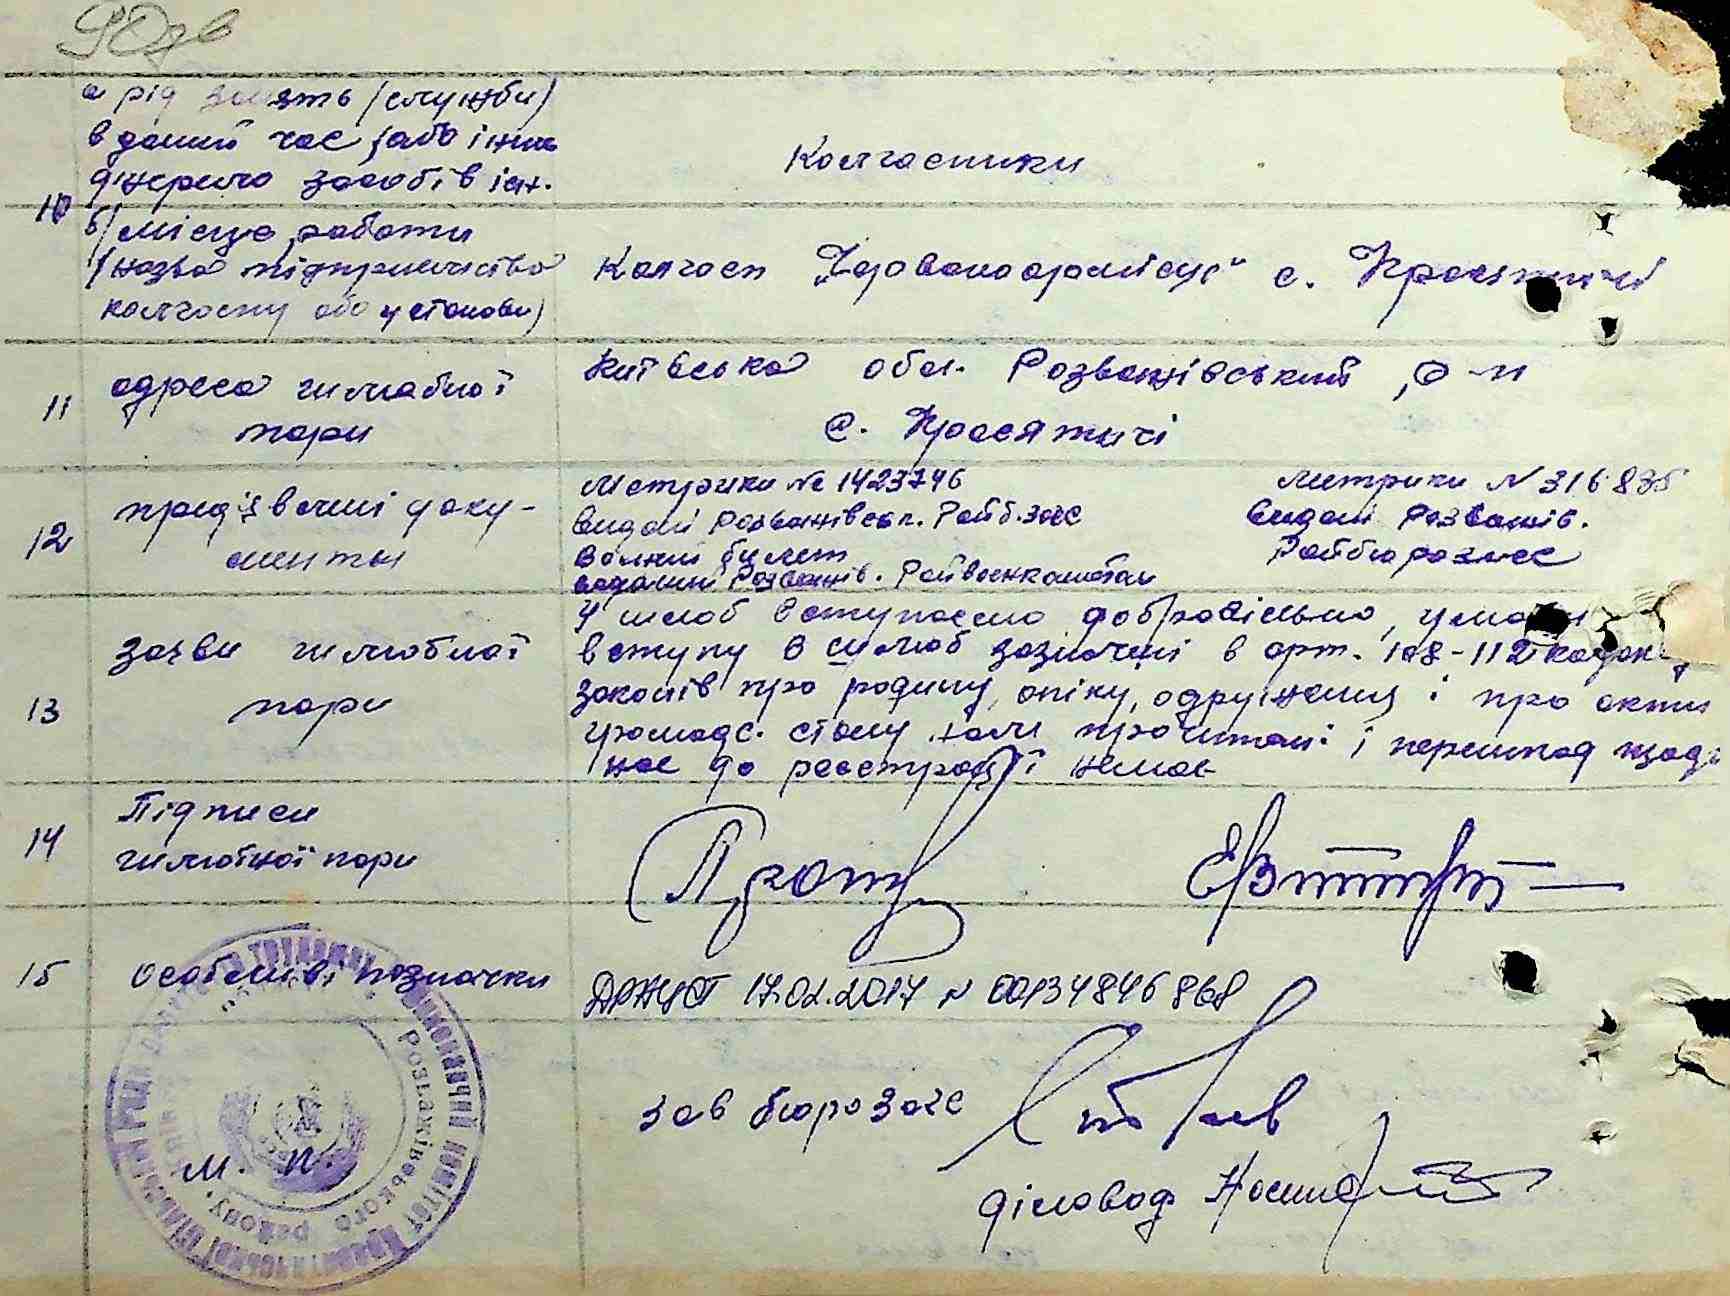 а рід занять (служби)
в даний час або інше
джерело засобів існ.
Колгоспники
10
б/ місце роботи
(назва підприємства
колгоспу або установи)
Колгосп "Червоноармієць" с. Красятичі
11
адреса шлюбної
пари
Київська обл. Розважівський р-н
с. Красятичі
12
пред'явлені доку-
менты
Метрики № 1423746
видані Розважівськ. Райб.загс
Воєний билет
виданий Розважів. Райвоєнкоматом
метрики N 316835
видані Розважів.
Райбюрозагс
13
заяви шлюбної
пари
У шлюб вступаємо добровільно, умови
вступу в шлюб зазначені в арт. 108-112 кодек.
законів про родину, опіку, одруження і про акти
громадс. стану нами прочитані і перешкод щодо
нас до реєстрації немає
14
Підписи
шлюбної пари
15
особливі позначки
ДРАЦСГ 17.02.2017 N 00134846868
зав бюро загс
діловод
м. п.
виконавчий комітет Красятицької сільської Ради депутатів трудящих
Розважівського району